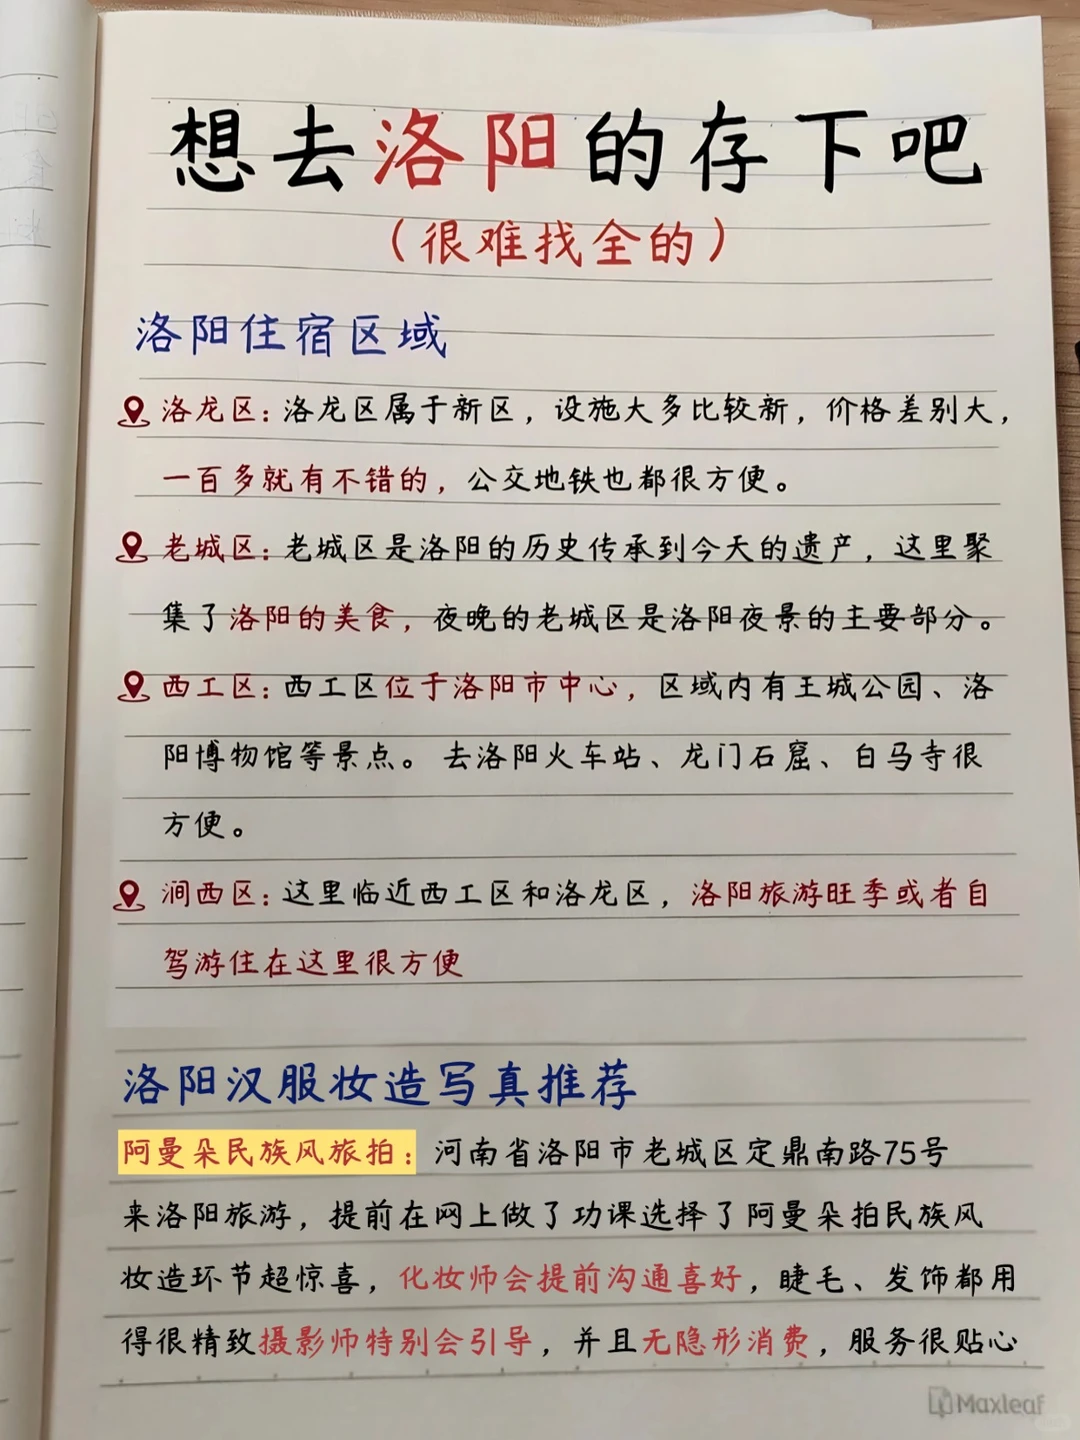 想去洛阳的存下吧
（很难找全的）
洛阳住宿区域
洛龙区：洛龙区属于新区，设施大多比较新，价格差别大，
一百多就有不错的，公交地铁也都很方便。
老城区：老城区是洛阳的历史传承到今天的遗产，这里聚
集了洛阳的美食，夜晚的老城区是洛阳夜景的主要部分。
西工区：西工区位于洛阳市中心，区域内有王城公园、洛
阳博物馆等景点。去洛阳火车站、龙门石窟、白马寺很
方便。
涧西区：这里临近西工区和洛龙区，洛阳旅游旺季或者自
驾游住在这里很方便
洛阳汉服妆造写真推荐
阿曼朵民族风旅拍：河南省洛阳市老城区定鼎南路75号
来洛阳旅游，提前在网上做了功课选择了阿曼朵拍民族风
妆造环节超惊喜，化妆师会提前沟通喜好，睫毛、发饰都用
得很精致摄影师特别会引导，并且无隐形消费，服务很贴心
Maxleaf